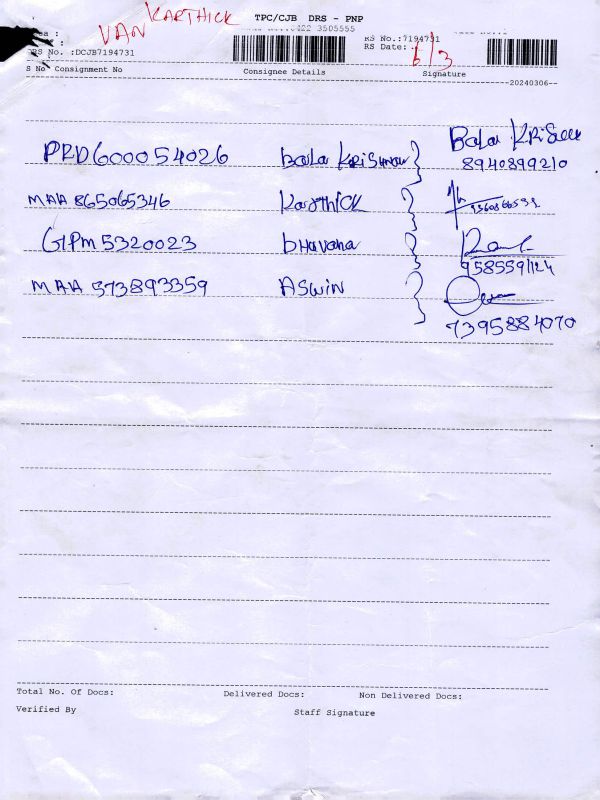 VAN KARTHICK
TPC/CJB DRS - PNP
0422 3505555
DRS No. :DCJB7194731
RS No.:7194731
RS Date:
6/3
S No Consignment No Consignee Details Signature
20240306
PRD600054026 Bala KRiShnan Bala KRiSh
8940899210
MAA 865065346 Karthick
GIPM5320023 bhavana
MAA 573893359 ASWIN
7395884070
Total No. Of Docs: Delivered Docs: Non Delivered Docs:
Verified By Staff Signature